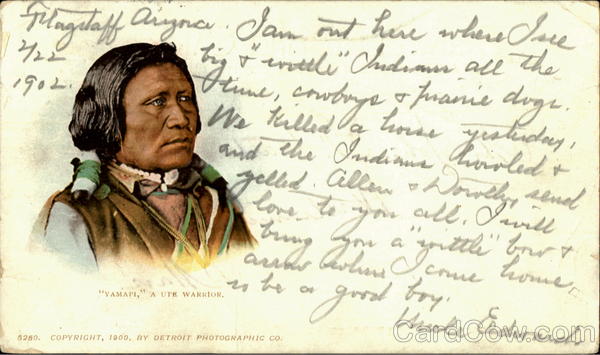 Flagstaff Arizona.
2/22
1902.
I am out here where I see
big & "wittle" Indians all the
time, cowboys & prairie dogs.
We killed a horse yesterday,
and the Indians howled &
yelled. Allen & Dorothy send
love to you all. I will
bring you a "wittle" bow &
arrow when I come home,
so be a good boy.
Edward
"YAMAPI," A UTE WARRIOR.
5280. COPYRIGHT, 1900, BY DETROIT PHOTOGRAPHIC CO.
CardCow.com